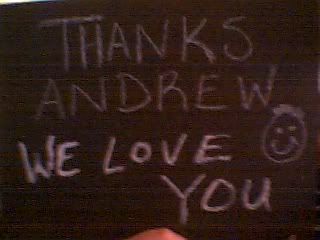 THANKS
ANDREW
WE LOVE
YOU